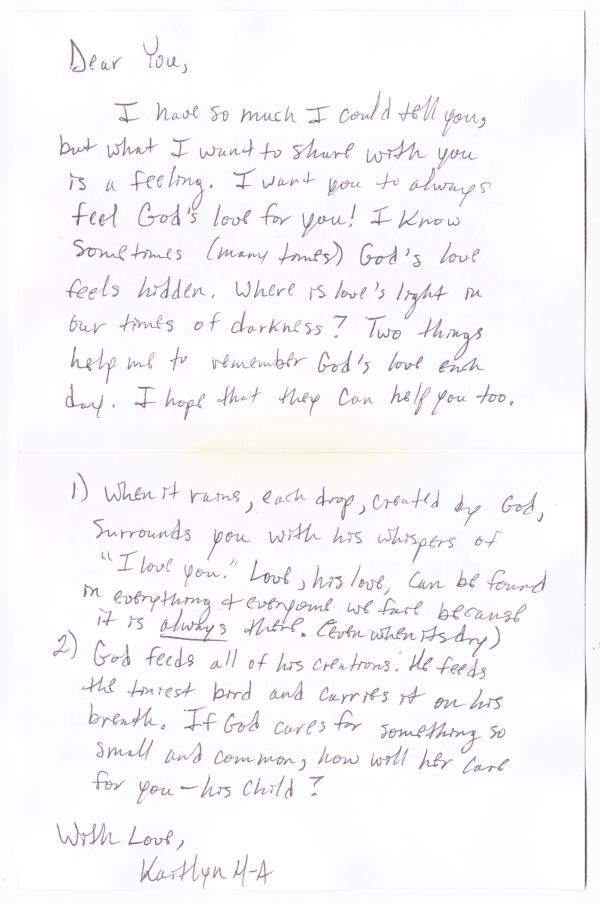 Dear You,
I have so much I could tell you,
but what I want to share with you
is a feeling. I want you to always
feel God's love for you! I know
sometimes (many times) God's love
feels hidden. Where is love's light in
our times of darkness? Two things
help me to remember God's love each
day. I hope that they can help you too.
1) When it rains, each drop, created by God,
surrounds you with his whispers of
"I love you." Love, his love, can be found
in everything & everyone we face because
it is always there. (even when its dry)
2) God feeds all of his creations. He feeds
the tiniest bird and carries it on his
breath. If God cares for something so
small and common, how will her care
for you - his child?
With Love,
Kaitlyn M-A